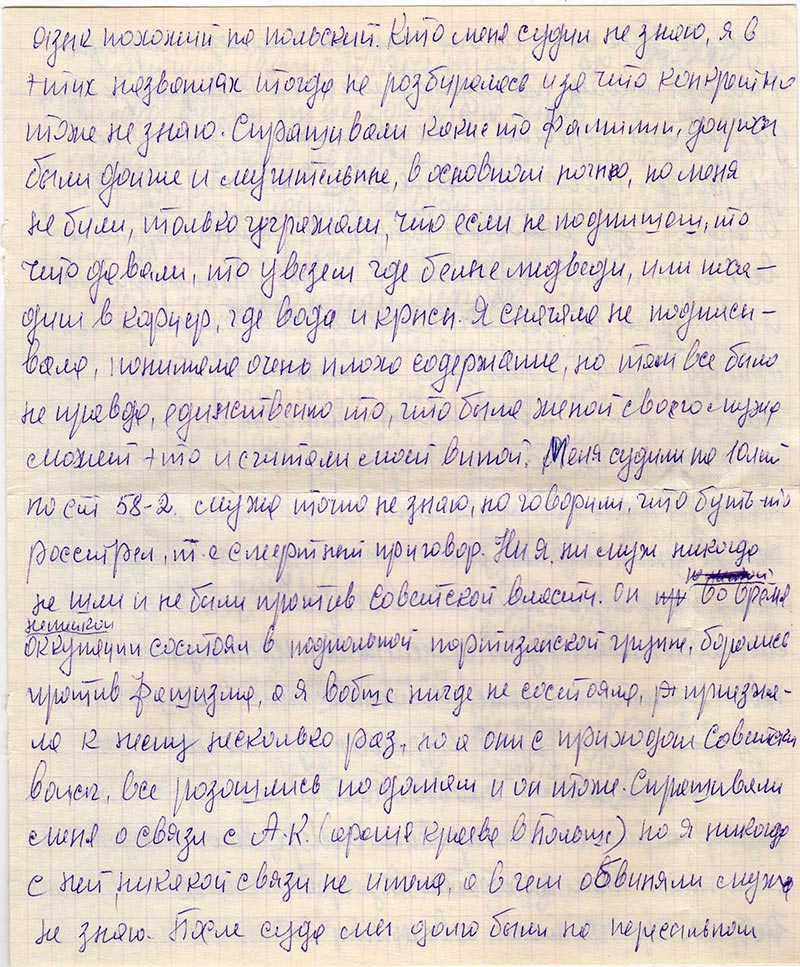 язык похожий на польский. Кто меня судил не знаю, я в
этих названиях тогда не розбиралась и за что конкретно
тоже не знаю. Спрашивали какие то фамилии, допросы
были долгие и мучительные, в основном ночью, но меня
не били, только угражали, что если не подпишеш, то
что давали, то увезем где белые медведи, или поса-
дим в карцер, где вода и крысы. Я сначала не подписы-
вала, понимала очень плохо содержание, но там все было
не правда, единственно то, что была женой своего мужа
может это и считали моей виной. Меня судили на 10 лет
по ст 58-2 мужа точно не знаю, но говорили, что буть-то
росстрел, т-е смертней приговор. Ни я, ни муж никогда
не шли и не были против Советской власти. Он во время
немецкой
оккупации состоял в подпольной партизанской группе, боролись
против фашизма, а я вобще нигде не состояла, приезжа-
ла к нему несколько раз, но а они с приходом Советских
войск, все розошлись по домам и он тоже. Спрашивали
меня о связи с А.К. (армия краева в Польше) но я никогда
с ней никакой связи не имела, а в чем обвиняли мужа
не знаю. После суда мы долго были на пересыльном